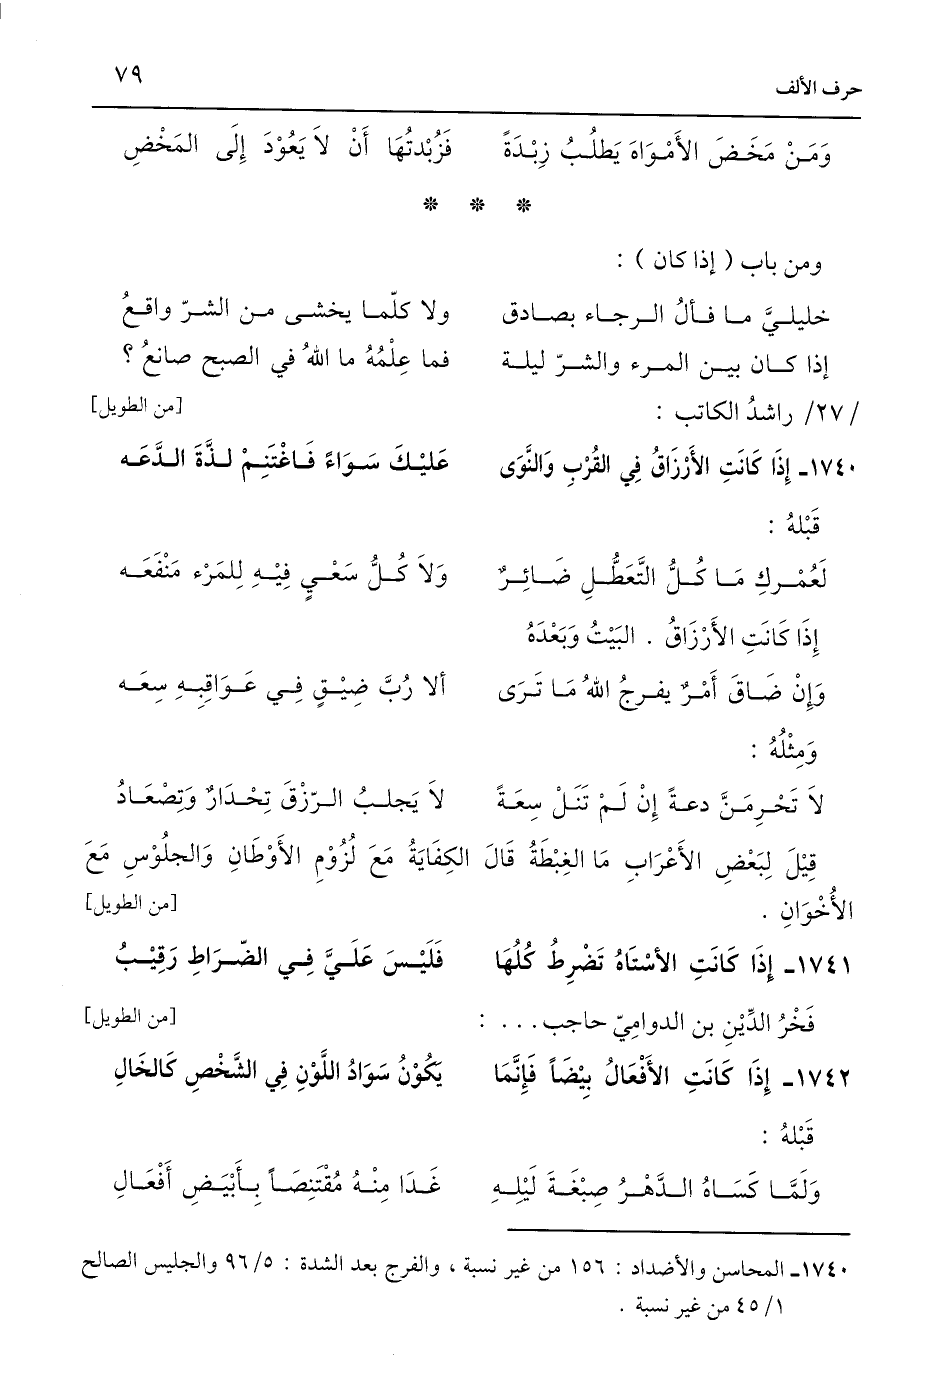 حرف الألف ٧٩
وَمَنْ مَخَضَ الأَمْوَاهَ يَطلُبُ زِبْدَةً فَزُبْدتُهَا أَنْ لاَ يَعُوْدَ إِلَى المَخْضِ
* * *
ومن باب ( إذا كان ) :
خليليَّ ما فألُ الرجاء بصادق ولا كلّما يخشى من الشرّ واقعُ
إذا كان بين المرء والشرّ ليلة فما علِمُهُ ما اللهُ في الصبح صانعُ ؟
/٢٧/ راشدُ الكاتب : [من الطويل]
١٧٤٠ـ إِذَا كَانَتِ الأَرْزَاقُ فِي القُرْبِ وَالنَّوَى عَلَيْكَ سَوَاءً فَاغْتَنِمْ لذَّةَ الدَّعَه
قَبْلهُ :
لَعُمْركِ مَا كُلُّ التَّعَطُّلِ ضَائِرٌ وَلاَ كُلُّ سَعْيٍ فِيْهِ لِلمَرْء مَنْفَعَه
إِذَا كَانَتِ الأَرْزَاقُ . البَيْتُ وَبَعْدَهُ
وَإِنْ ضَاقَ أَمْرٌ يفرجُ اللهُ مَا تَرَى ألا رُبَّ ضِيْقٍ فِي عَوَاقِبِهِ سِعَه
وَمِثْلُهُ :
لاَ تَحْرِمَنَّ دعةً إِنْ لَمْ تَنَلْ سِعَةً لاَ يَجلبُ الرّزْقَ تِحْدَارٌ وَتِصْعَادُ
قِيْلَ لِبَعْضِ الأَعْرَابِ مَا الغِبْطَةُ قَالَ الكِفَايَةُ مَعَ لزُوْمِ الأَوْطَانِ وَالجلُوْسِ مَعَ
الأُخْوَانِ . [من الطويل]
١٧٤١ـ إِذَا كَانَتِ الأسْتَاهُ تَضْرِطُ كُلُهَا فَلَيْسَ عَلَيَّ فِي الضّرَاطِ رَقِيْبُ
فَخْرُ الدِّيْنِ بن الدواميّ حاجب. . . : [من الطويل]
١٧٤٢ـ إِذَا كَانَتِ الأَفْعَالُ بِيْضَاً فَإِنَّمَا يَكُوْنُ سَوَادُ اللَّوْنِ فِي الشَّخْصِ كَالخَالِ
قَبْلهُ :
وَلَمَّا كَسَاهُ الدَّهْرُ صِبْغَةَ لَيْلِهِ غَدَا مِنْهُ مُقْتَنِصَاً بِأَبْيَضِ أَفْعَالِ
١٧٤٠ـ المحاسن والأضداد : ١٥٦ من غير نسبة ، والفرج بعد الشدة : ٥/ ٩٦ والجليس الصالح
١/ ٤٥ من غير نسبة .